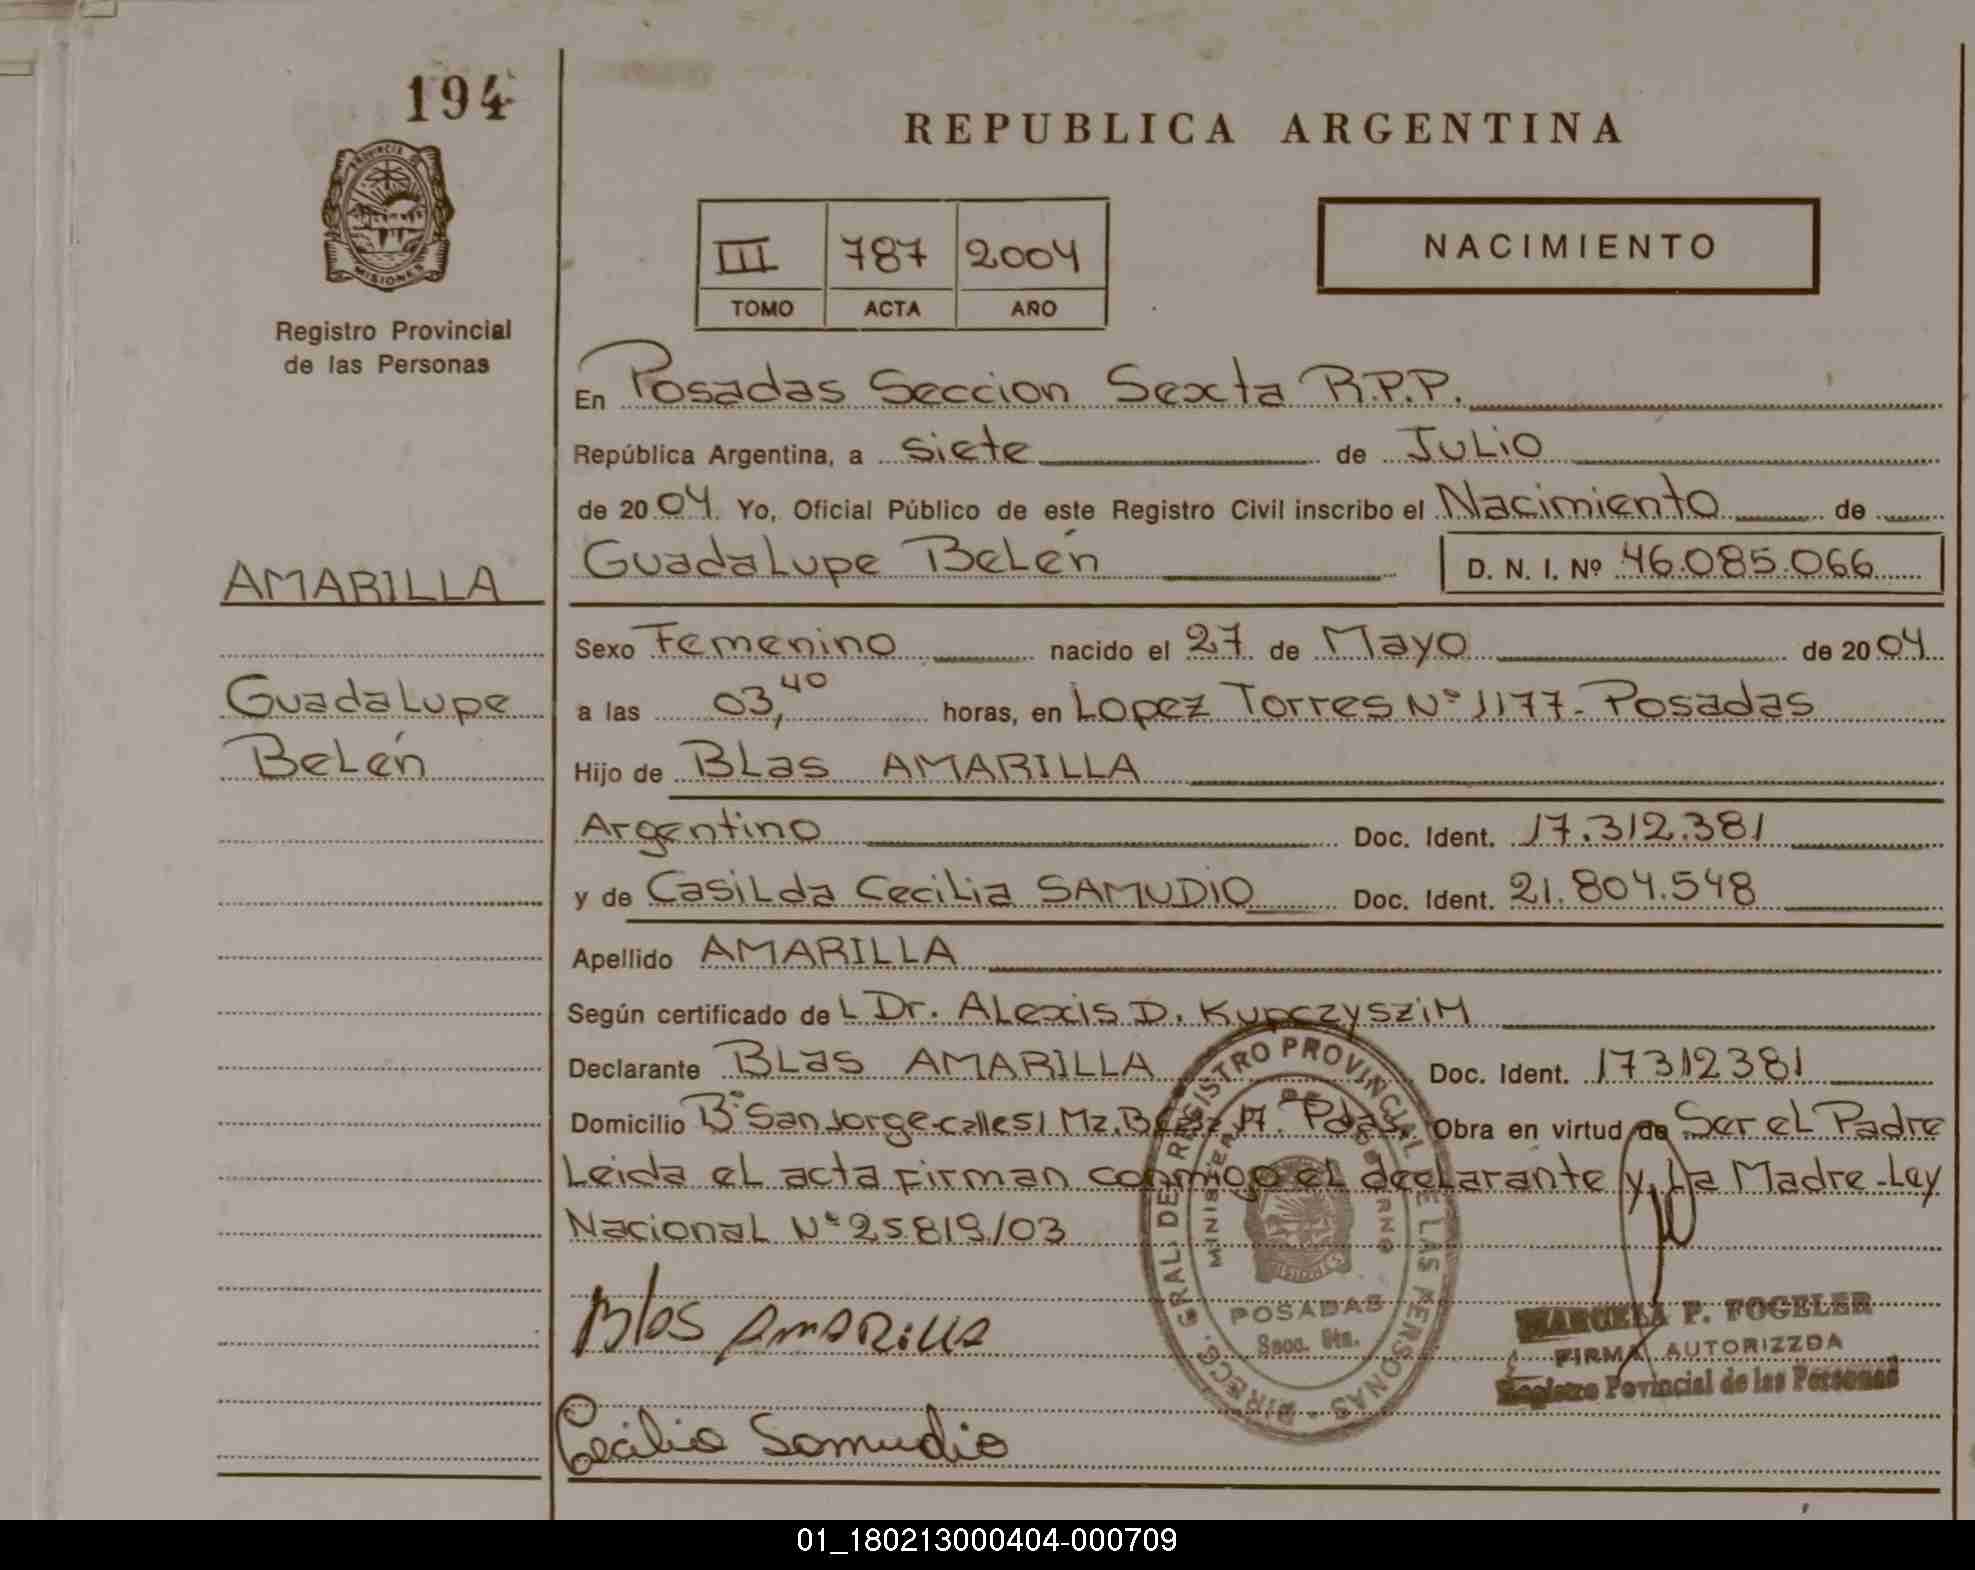 194
PROVINCIA DE
MISIONES
Registro Provincial
de las Personas
REPUBLICA ARGENTINA
III 787 2004
TOMO ACTA AÑO
NACIMIENTO
En Posadas Seccion Sexta R.P.P.
República Argentina, a siete de Julio
de 2004. Yo, Oficial Público de este Registro Civil inscribo el Nacimiento de
AMARILLA
Guadalupe Belén D. N. I. Nº 46.085.066
Sexo Femenino nacido el 27 de Mayo de 2004
Guadalupe
a las 03,40 horas, en Lopez Torres Nº 1177- Posadas
Belén
Hijo de Blas AMARILLA
Argentino Doc. Ident. 17.312.381
y de Casilda Cecilia SAMUDIO Doc. Ident. 21.804.548
Apellido AMARILLA
Según certificado de L Dr. Alexis D. KupczysziM
Declarante Blas AMARILLA Doc. Ident. 17312381
Domicilio Bº San Jorge-calle 51 Mz. B 17. Pdas. Obra en virtud de Ser el Padre
Leida el acta firman conmigo el declarante y La Madre-Ley
Nacional Nº 25.819/03
Blas AMARILLA
Cecilia Samudio
DIRECC. GRAL. DE REGISTRO PROVINCIAL DE LAS PERSONAS
MINISTERIO DE GOBIERNO
MISIONES
POSADAS
Secc. 6ta.
MARCELA P. FOGELER
FIRMA AUTORIZZDA
Registro Povincial de las Personas
01_180213000404-000709